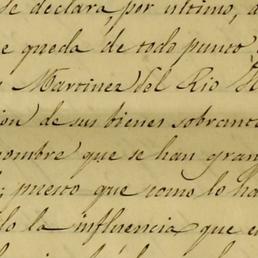 se declara, por ultimo, a
e queda de todo punto
Martinez del Rio
ion de sus bienes sobrant
nombre que se han gran
; puesto que como lo ha
lo la influencia que e